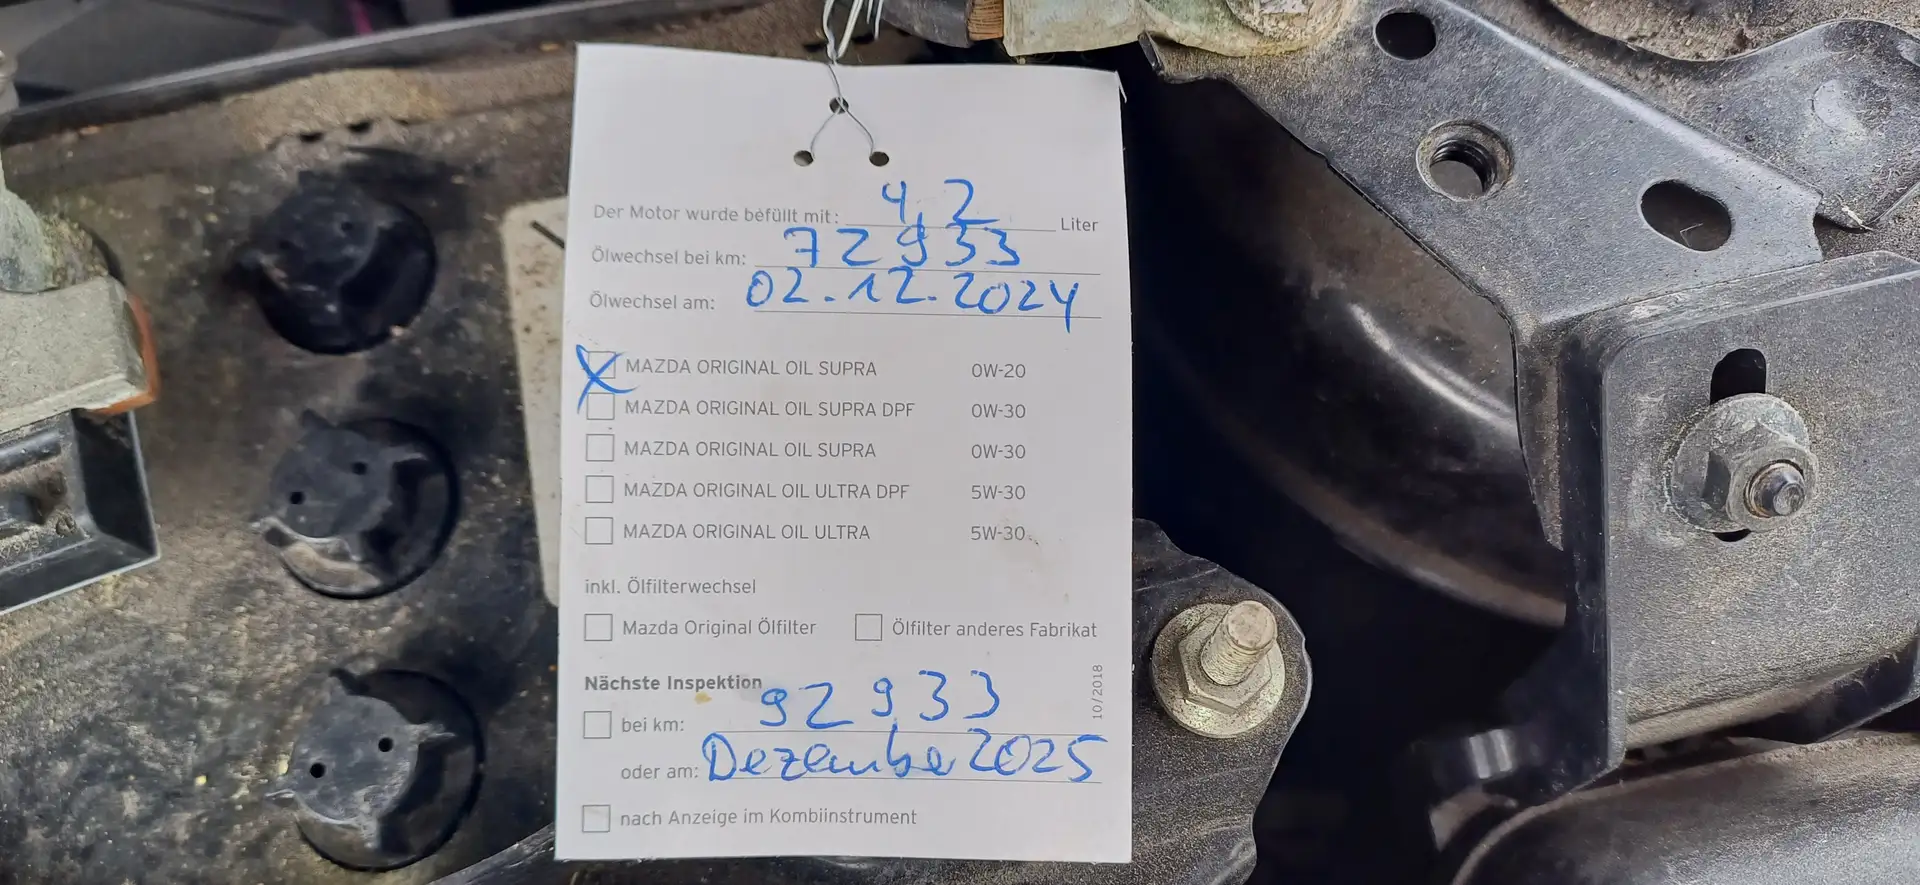 Der Motor wurde befüllt mit: 4,2 Liter
Ölwechsel bei km: 72933
Ölwechsel am: 02.12.2024
MAZDA ORIGINAL OIL SUPRA 0W-20
MAZDA ORIGINAL OIL SUPRA DPF 0W-30
MAZDA ORIGINAL OIL SUPRA 0W-30
MAZDA ORIGINAL OIL ULTRA DPF 5W-30
MAZDA ORIGINAL OIL ULTRA 5W-30
inkl. Ölfilterwechsel
Mazda Original Ölfilter Ölfilter anderes Fabrikat
Nächste Inspektion
bei km: 92933
oder am: Dezember 2025
nach Anzeige im Kombiinstrument
10/2018